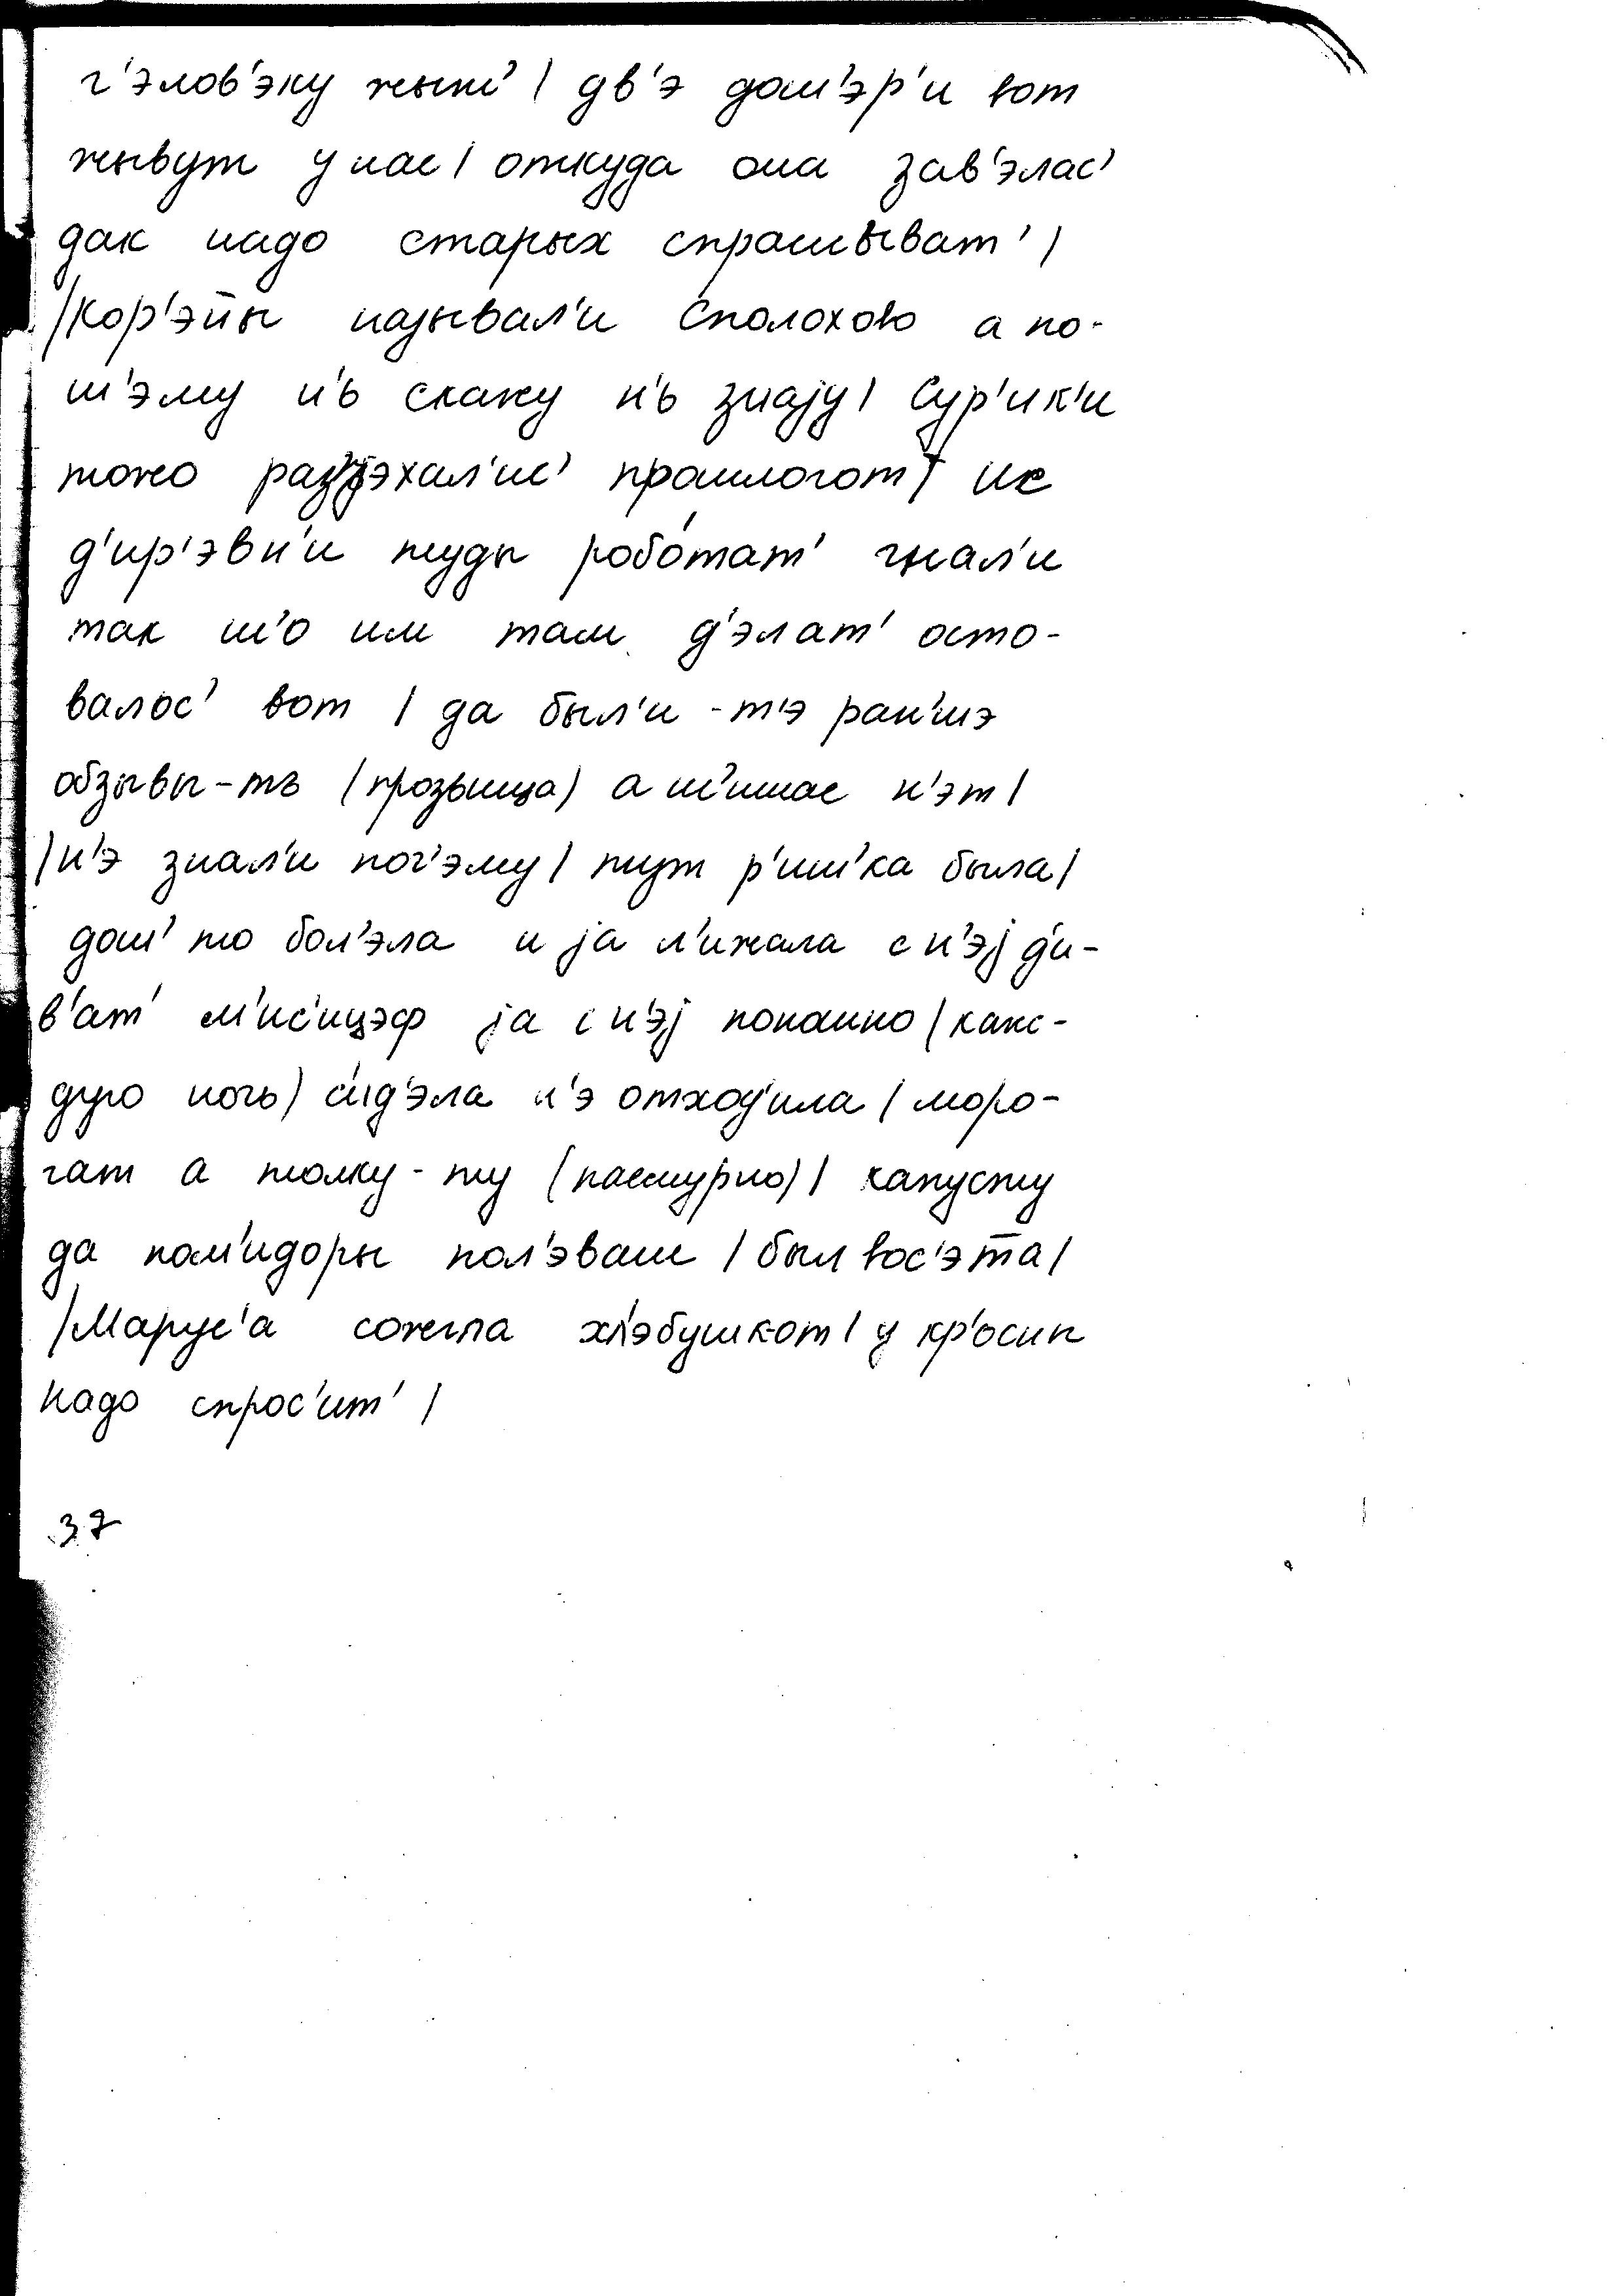 ч'элов'эку жыт' | дв'э дош'эр'и вот
жывут у нас | откуда она зав'элас'
дак надо старых спрашыват' |
| Кор'эйы называл'и Сполохово а по-
ш'эму н'ь скажу н'ь знајy | Сур'ик'и
тожо разјэхал'ис' прошлогот | ис
д'ир'эвн'и туды робо́тат' гнал'и
так ш'о им там д'элат' осто-
валос' вот | да был'и - т'э ран'шэ
обзывы-тъ (прозвища) а ш'ишас н'эт |
| н'э знал'и поч'эму | тут р'иш'ка была |
дош' то бол'эла и ја л'ижала с н'эј д'и-
в'ат' м'ис'ицэф ја с н'эј поношно (каж-
дую ночь) с'ид'эла н'э отход'ила | моро-
чат а толку - ту (пасмурно) | капусту
да пом'идоры пол'эваш | был вос'эта |
| Марус'а сожгла хл'эбушкот | у кр'осны
надо спрос'ит' |
37